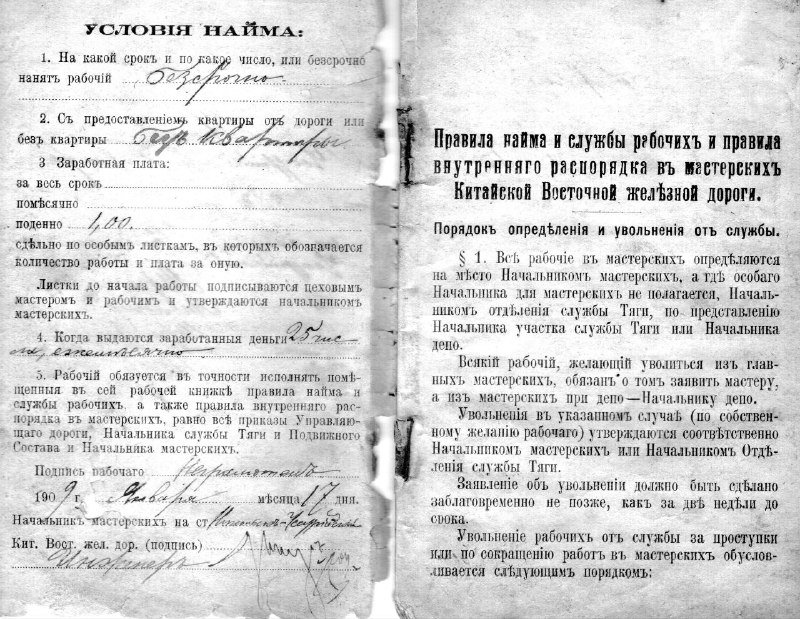 УСЛОВІЯ НАЙМА:
1. На какой срокъ и по какое число, или безсрочно
нанятъ рабочій Безсрочно
2. Съ предоставленіемъ квартиры отъ дороги или
безъ квартиры Безъ квартиры
3 Заработная плата:
за весь срокъ
помѣсячно
поденно 1,00.
сдѣльно по особымъ листкамъ, въ которыхъ обозначается
количество работы и плата за оную.
Листки до начала работы подписываются цеховымъ
мастеромъ и рабочимъ и утверждаются начальникомъ
мастерскихъ.
4. Когда выдаются заработанныя деньги 25 чис-
ла, ежемѣсячно
5. Рабочій обязуется въ точности исполнять помѣ-
щенныя въ сей рабочей книжкѣ правила найма и
службы рабочихъ. а также правила внутренняго рас-
порядка въ мастерскихъ, равно всѣ приказы Управляю-
щаго дороги, Начальника службы Тяги и Подвижного
Состава и Начальника мастерскихъ.
Подпись рабочаго Неграмотенъ
1909 г. Января мѣсяца 17 дня.
Начальникъ мастерскихъ на ст.
Кит. Вост. жел. дор. (подпись)
Инженеръ
Правила найма и службы рабочихъ и правила
внутренняго распорядка въ мастерскихъ
Китайской Восточной желѣзной дороги.
Порядокъ опредѣленія и увольненія отъ службы.
§ 1. Всѣ рабочіе въ мастерскихъ опредѣляются
на мѣсто Начальникомъ мастерскихъ, а гдѣ особаго
Начальника для мастерскихъ не полагается, Началь-
никомъ отдѣленія службы Тяги, по представленію
Начальника участка службы Тяги или Начальника
депо.
Всякій рабочій, желающій уволиться изъ глав-
ныхъ мастерскихъ, обязанъ о томъ заявить мастеру,
а изъ мастерскихъ при депо—Начальнику депо.
Увольненія въ указанномъ случаѣ (по собствен-
ному желанію рабочаго) утверждаются соотвѣтственно
Начальникомъ мастерскихъ или Начальникомъ Отдѣ-
ленія службы Тяги.
Заявленіе объ увольненіи должно быть сдѣлано
заблаговременно не позже, какъ за двѣ недѣли до
срока.
Увольненіе рабочихъ отъ службы за проступки
или по сокращенію работъ въ мастерскихъ обуслов-
ливается слѣдующимъ порядкомъ: